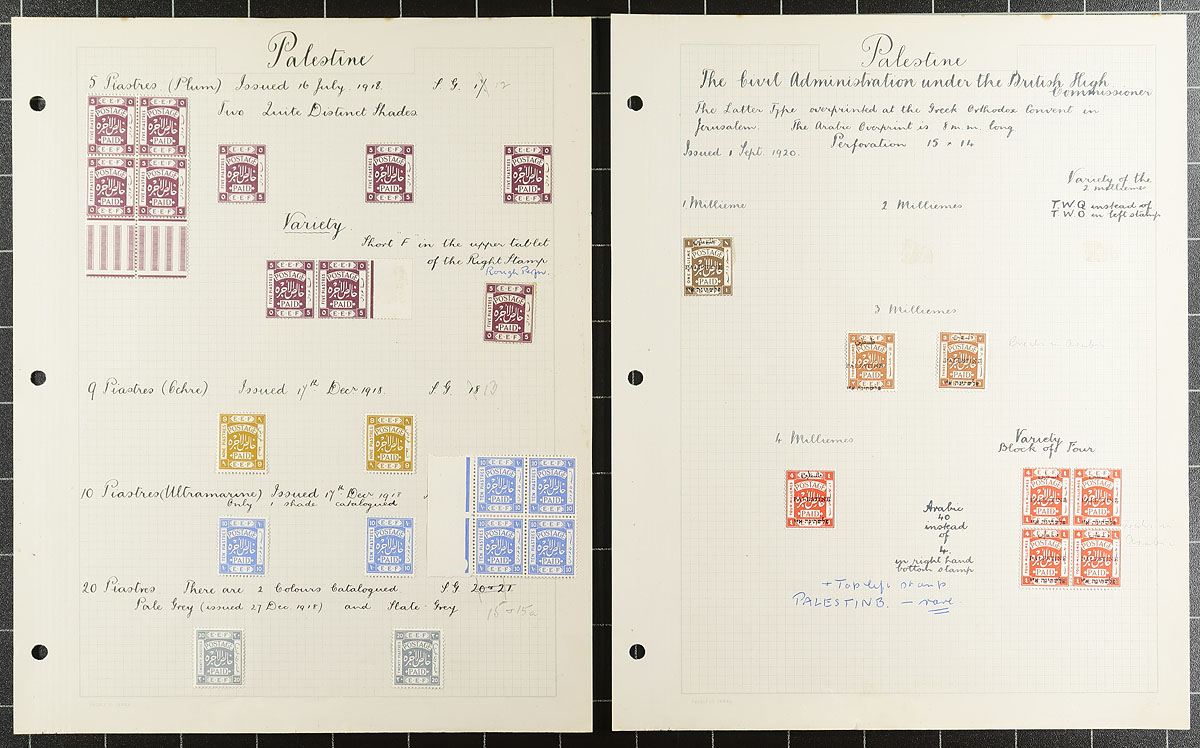 Palestine
5 Piastres (Plum) Issued 16 July. 1918. S. G. 17 12
Two Quite Distinct Shades
Variety.
Short "F" in the upper tablet
of the Right Stamp
Rough Perfn.
9 Piastres (Ochre) Issued 17th Decr 1918. S. G. 18
10 Piastres (Ultramarine) Issued 17th Decr 1918
Only 1 shade catalogued
20 Piastres There are 2 Colours Catalogued S.G. 20 + 21
Pale Grey (issued 27 Dec. 1918) and Slate-Grey 15 + 15a
E·E·F
POSTAGE
خالص الاجره
PAID
E·E·F
FIVE PIASTRES
Palestine
The Civil Administration under the British High
Commissioner
The Latter Type overprinted at the Greek Orthodox Convent in
Jerusalem. The Arabic Overprint is 8 m.m. long
Issued 1 Sept. 1920. Perforation 15 × 14
Variety of the
2 milliemes
1 Millieme 2 Milliemes T.W.Q instead of
T.W.O in left stamp
3 Milliemes
4 Milliemes
Variety
Block of Four
Arabic
40
instead
of
4.
in right hand
bottom stamp
+ Top left stamp
PALESTINB. — rare